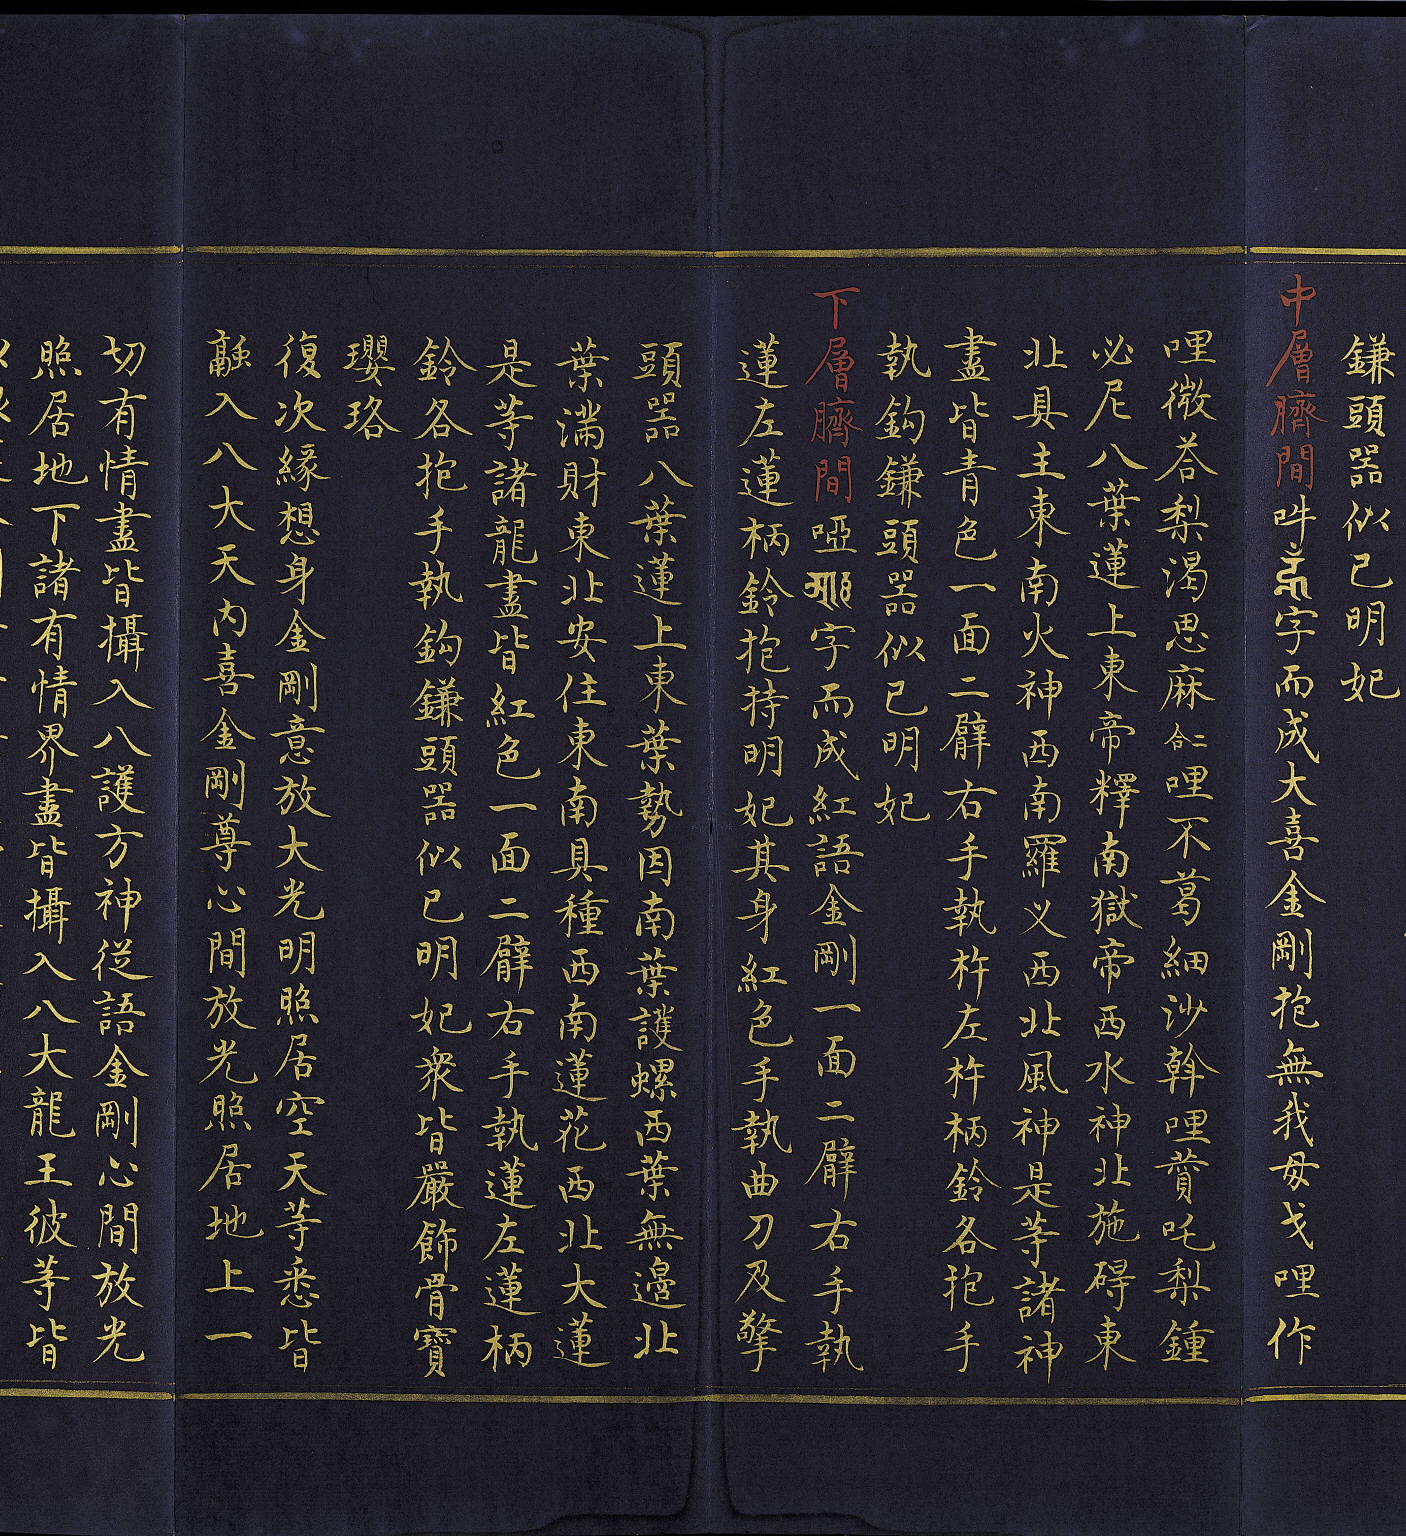 鎌頭器似已明妃
中層臍間吽字而成大喜金剛抱無我母戈哩作
哩微荅梨渴思麻二合哩不葛細沙斡哩賛吒梨鍾
必尼八葉蓮上東帝釋南獄帝西水神北施碍東
北具主東南火神西南羅义西北風神是等諸神
盡皆青色一面二臂右手執杵左杵柄鈴各抱手
執鈎鎌頭器似已明妃
下層臍間啞字而成紅語金剛一面二臂右手執
蓮左蓮柄鈴抱持明妃其身紅色手執曲刀及擎
頭器八葉蓮上東葉勢因南葉護螺西葉無邊北
葉滿財東北安住東南具種西南蓮花西北大蓮
是等諸龍盡皆紅色一面二臂右手執蓮左蓮柄
鈴各抱手執鈎鎌頭器似已明妃衆皆嚴飾骨寶
瓔珞
復次緣想身金剛意放大光明照居空天等悉皆
融入八大天内喜金剛尊心間放光照居地上一
切有情盡皆攝入八護方神從語金剛心間放光
照居地下諸有情界盡皆攝入八大龍王彼等皆